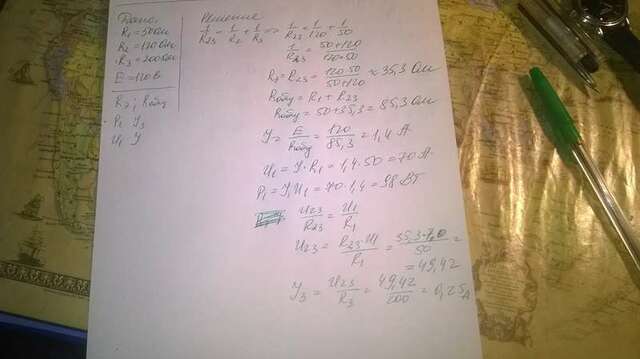 Дано:
R₁ = 50 Ом
R₂ = 120 Ом
R₃ = 200 Ом
E = 120 В
R₂; Rобщ
P₁ I₃
U₁ I
Решение
1/R₂₃ = 1/R₂ + 1/R₃ => 1/R₂₃ = 1/120 + 1/50
1/R₂₃ = (50+120)/(120·50)
R₂₃ = (120·50)/(50+120) ≈ 35,3 Ом
Rобщ = R₁ + R₂₃
Rобщ = 50 + 35,3 = 85,3 Ом
I = E/Rобщ = 120/85,3 = 1,4 А
U₁ = I · R₁ = 1,4 · 50 = 70 А
P₁ = I₁U₁ = 70 · 1,4 = 98 Вт
U₂₃/R₂₃ = U₁/R₁
U₂₃ = R₂₃U₁/R₁ = (35,3·7,0)/50 =
= 49,42
I₃ = U₂₃/R₃ = 49,42/200 = 0,25 А